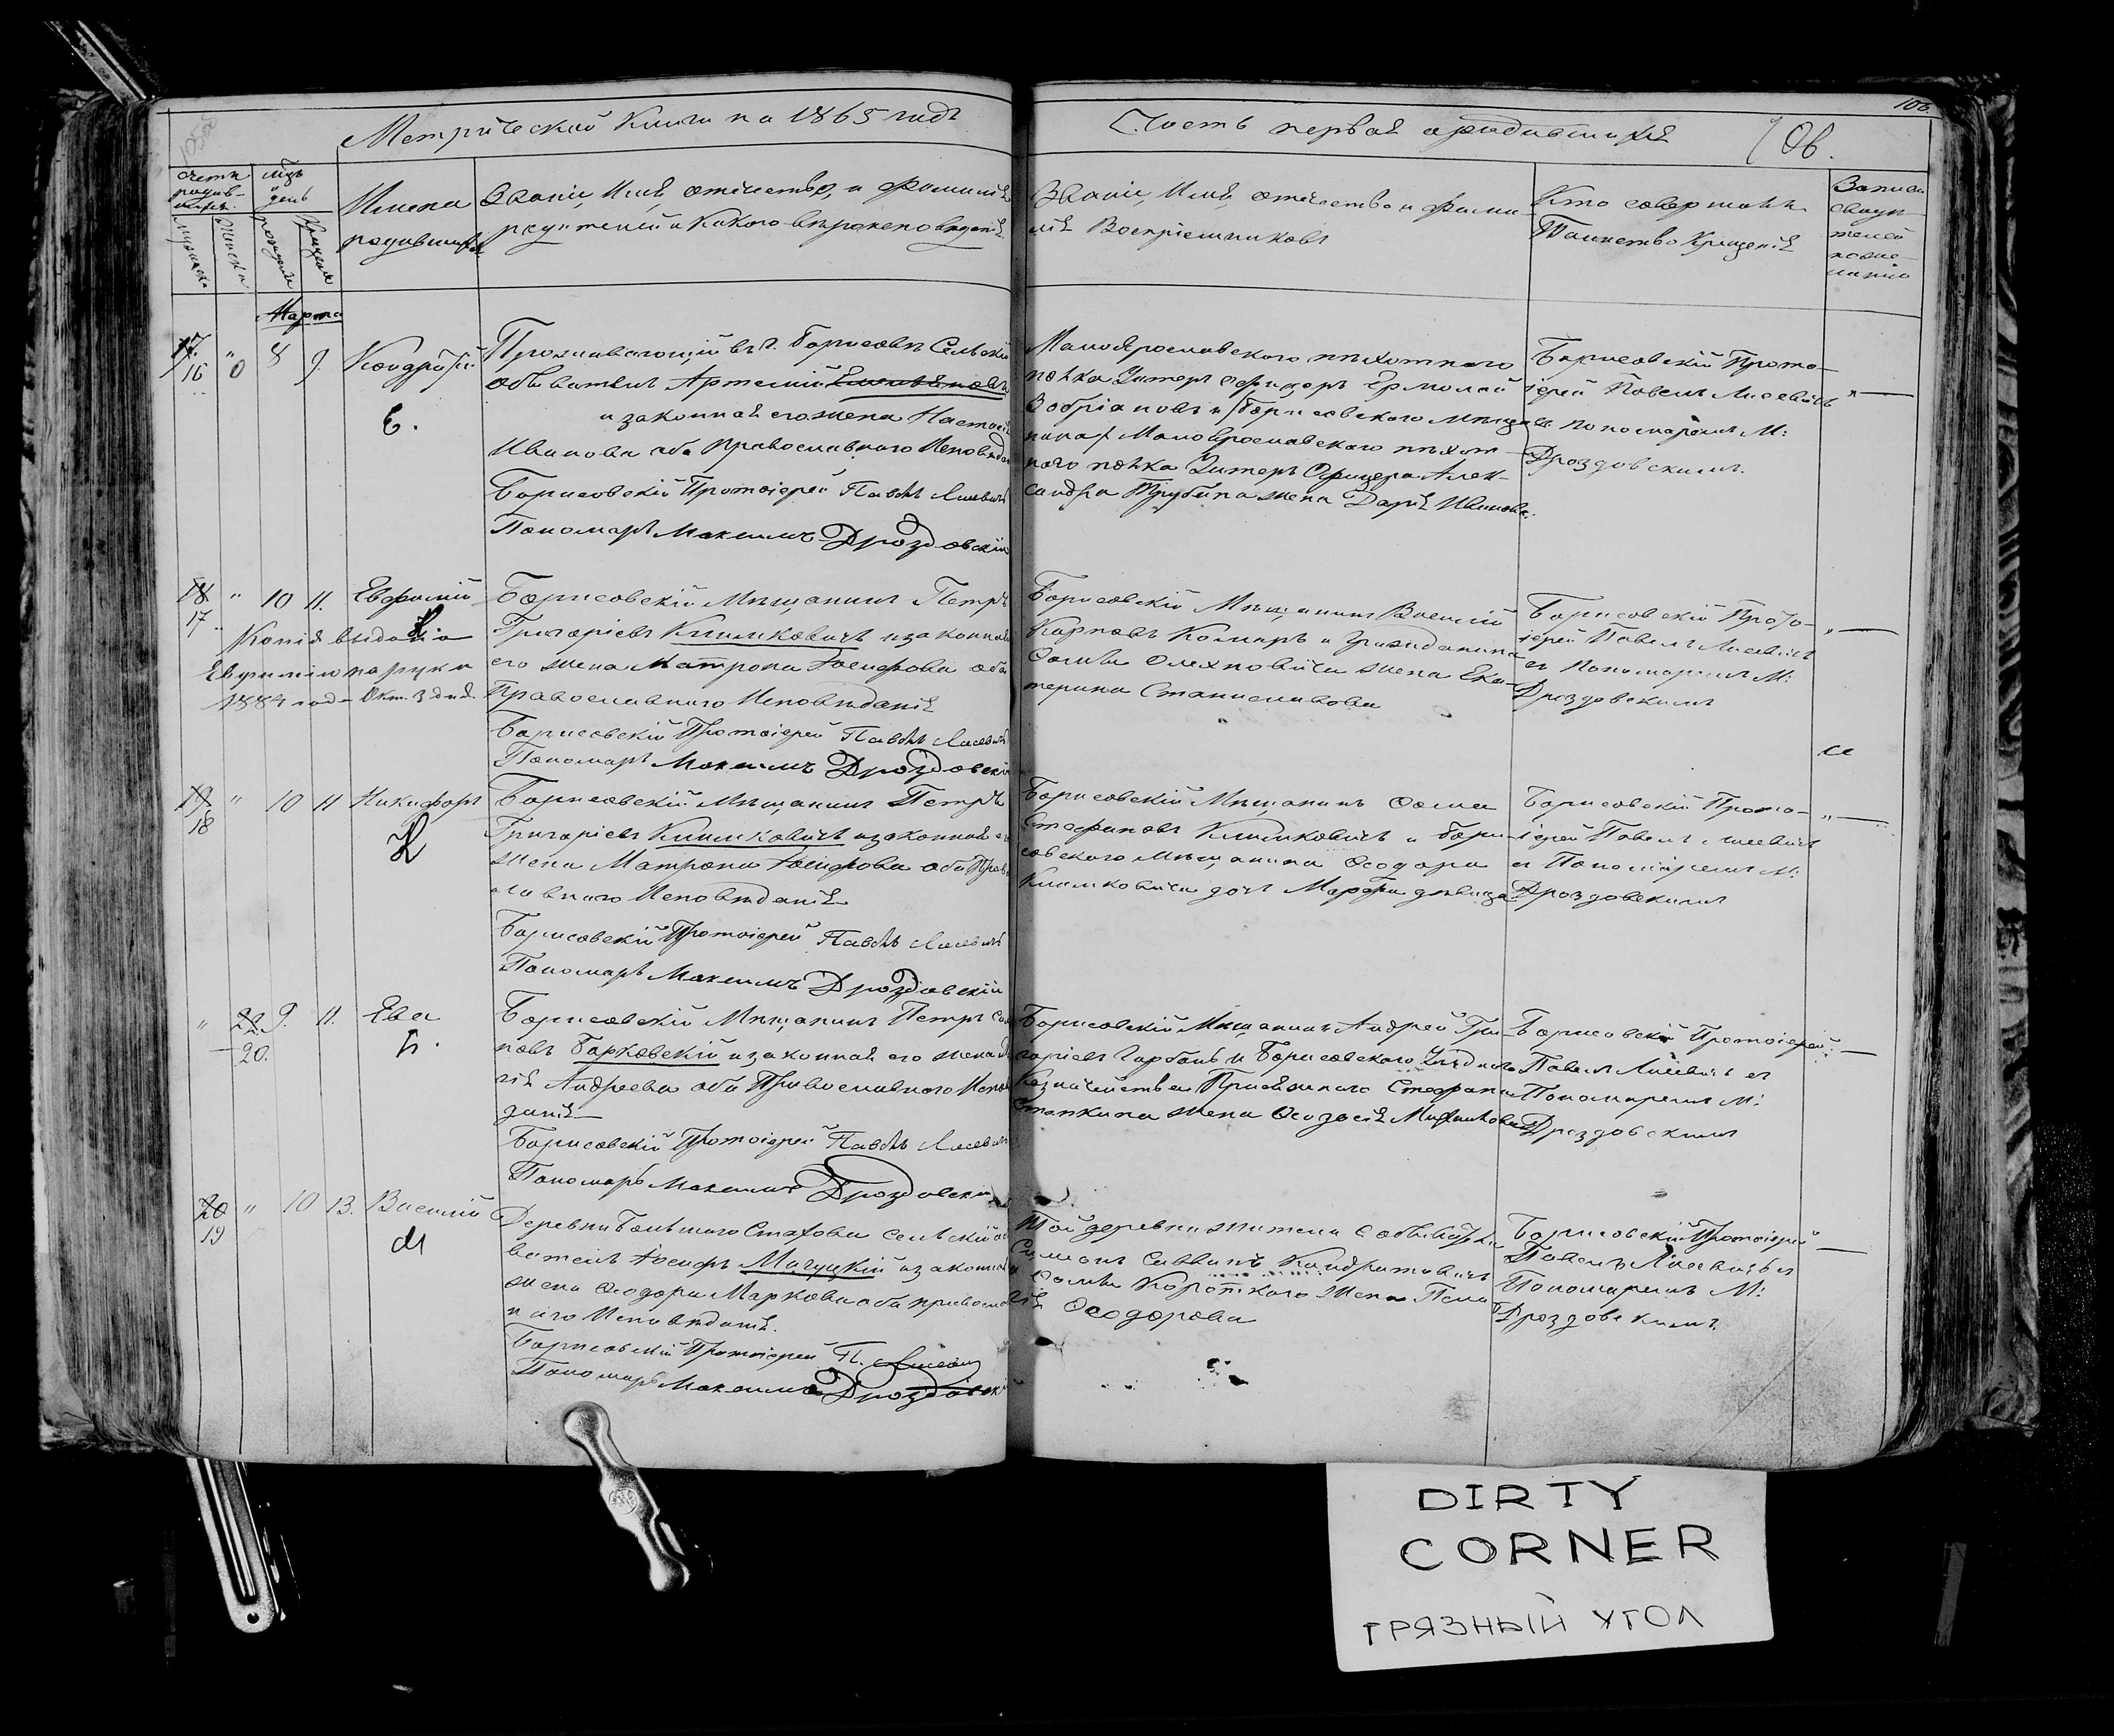 Метрической Книги на 1865 годъ
Часть первая о родившихся
106.
106.
Счетъ родив-шихся.
мужеска
женска
Мѣз. и день
рожденія
крещенія
Имена
родившихся
Званіе, Имя, отечество, и фамилія
родителей и какого вѣроисповеданія
Званіе, Имя, отечество и фами-
лія Воспріемниковъ
Кто совершалъ
Таинство Крещенія
Марта
17.
16
8
9.
Кондратій
Е.
Проживающій въ г. Борисовѣ Сельскій
обыватель Артемій
и законная его жена Настасія
Иванова оба православнаго Исповедан
Борисовскій Протоіерей Павелъ Лисевичъ
Пономарь Максимъ Дроздовскій
Малоярославского пѣхотнаго
полка Унтеръ офицеръ Ермолай
и Борисовского мѣщани
нина Малоярославского пѣхот-
наго полка Унтеръ Офицера Алек-
сандра Трубина жена Дарія Иванова.
Борисовскій Прото-
іерей Павелъ Лисевичъ
съ пономаремъ М:
Дроздовскимъ.
18.
17
10
11.
Евфимій
К
Копія выдана
Евфимію на руки
1884 года Окт. 3 дня.
Борисовскій Мѣщанинъ Петръ
Григоріевъ Климковичъ и законная
его жена Матрона Іосифова оба
Православнаго Исповѣданія
Борисовскій Протоіерей Павелъ Лисевичъ
Пономарь Максимъ Дроздовскій
Борисовскій Мѣщанинъ Василій
Карповъ Комаръ и Гражданина
Фомы Олехновича жена Ека-
терина Станиславова
Борисовскій Прото-
іерей Павелъ Лисевичъ
съ Пономаремъ М:
Дроздовскимъ
19.
18
10
11
Никифоръ
К
Борисовскій Мѣщанинъ Петръ
Григоріевъ Климковичъ и законная его
жена Матрона Іосифова оба Право
славнаго Исповѣданія
Борисовскій Протоіерей Павелъ Лисевичъ
Пономарь Максимъ Дроздовскій
Борисовскій Мѣщанинъ Фома
Стефановъ Климковичъ и Бори-
совского Мѣщанина Феодора
Климковича дочь Марфа девица
Борисовскій Прото-
іерей Павелъ Лисевичъ
съ Пономаремъ М:
Дроздовскимъ
22
20.
9.
11.
Ева
Б.
Борисовскій Мѣщанинъ Петръ
новъ Барковскій и законная его жена
Андреева оба Православнаго Испов
данія
Борисовскій Протоіерей Павелъ Лисевичъ
Пономарь Максимъ Дроздовскій
Борисовскій Мѣщанинъ Андрей Гри-
горіевъ Горбань и Борисовского Уѣздного
Казначейства Присяжнаго Стефана
жена Феодосія Михайлова
Борисовскій Протоіерей
Павелъ Лисевичъ съ
Пономаремъ М:
Дроздовскимъ
20
19
10
13.
Василій
М
Деревни Большаго Стахова сельскій об
ватель Іосифъ Мачуцкій и законная
жена Феодора Маркова оба православ
наго Исповѣданія.
Борисовскій Протоіерей П. Лисевичъ
Пономарь Максимъ Дроздовскій
Той деревни жители
Симонъ Саввинъ Кондратовичъ
и Фомы Короткаго жена Пела
гія Феодорова
Борисовскій Протоіерей
Павелъ Лисевичъ съ
Пономаремъ М:
Дроздовскимъ.
DIRTY
CORNER
ГРЯЗНЫЙ УГОЛ